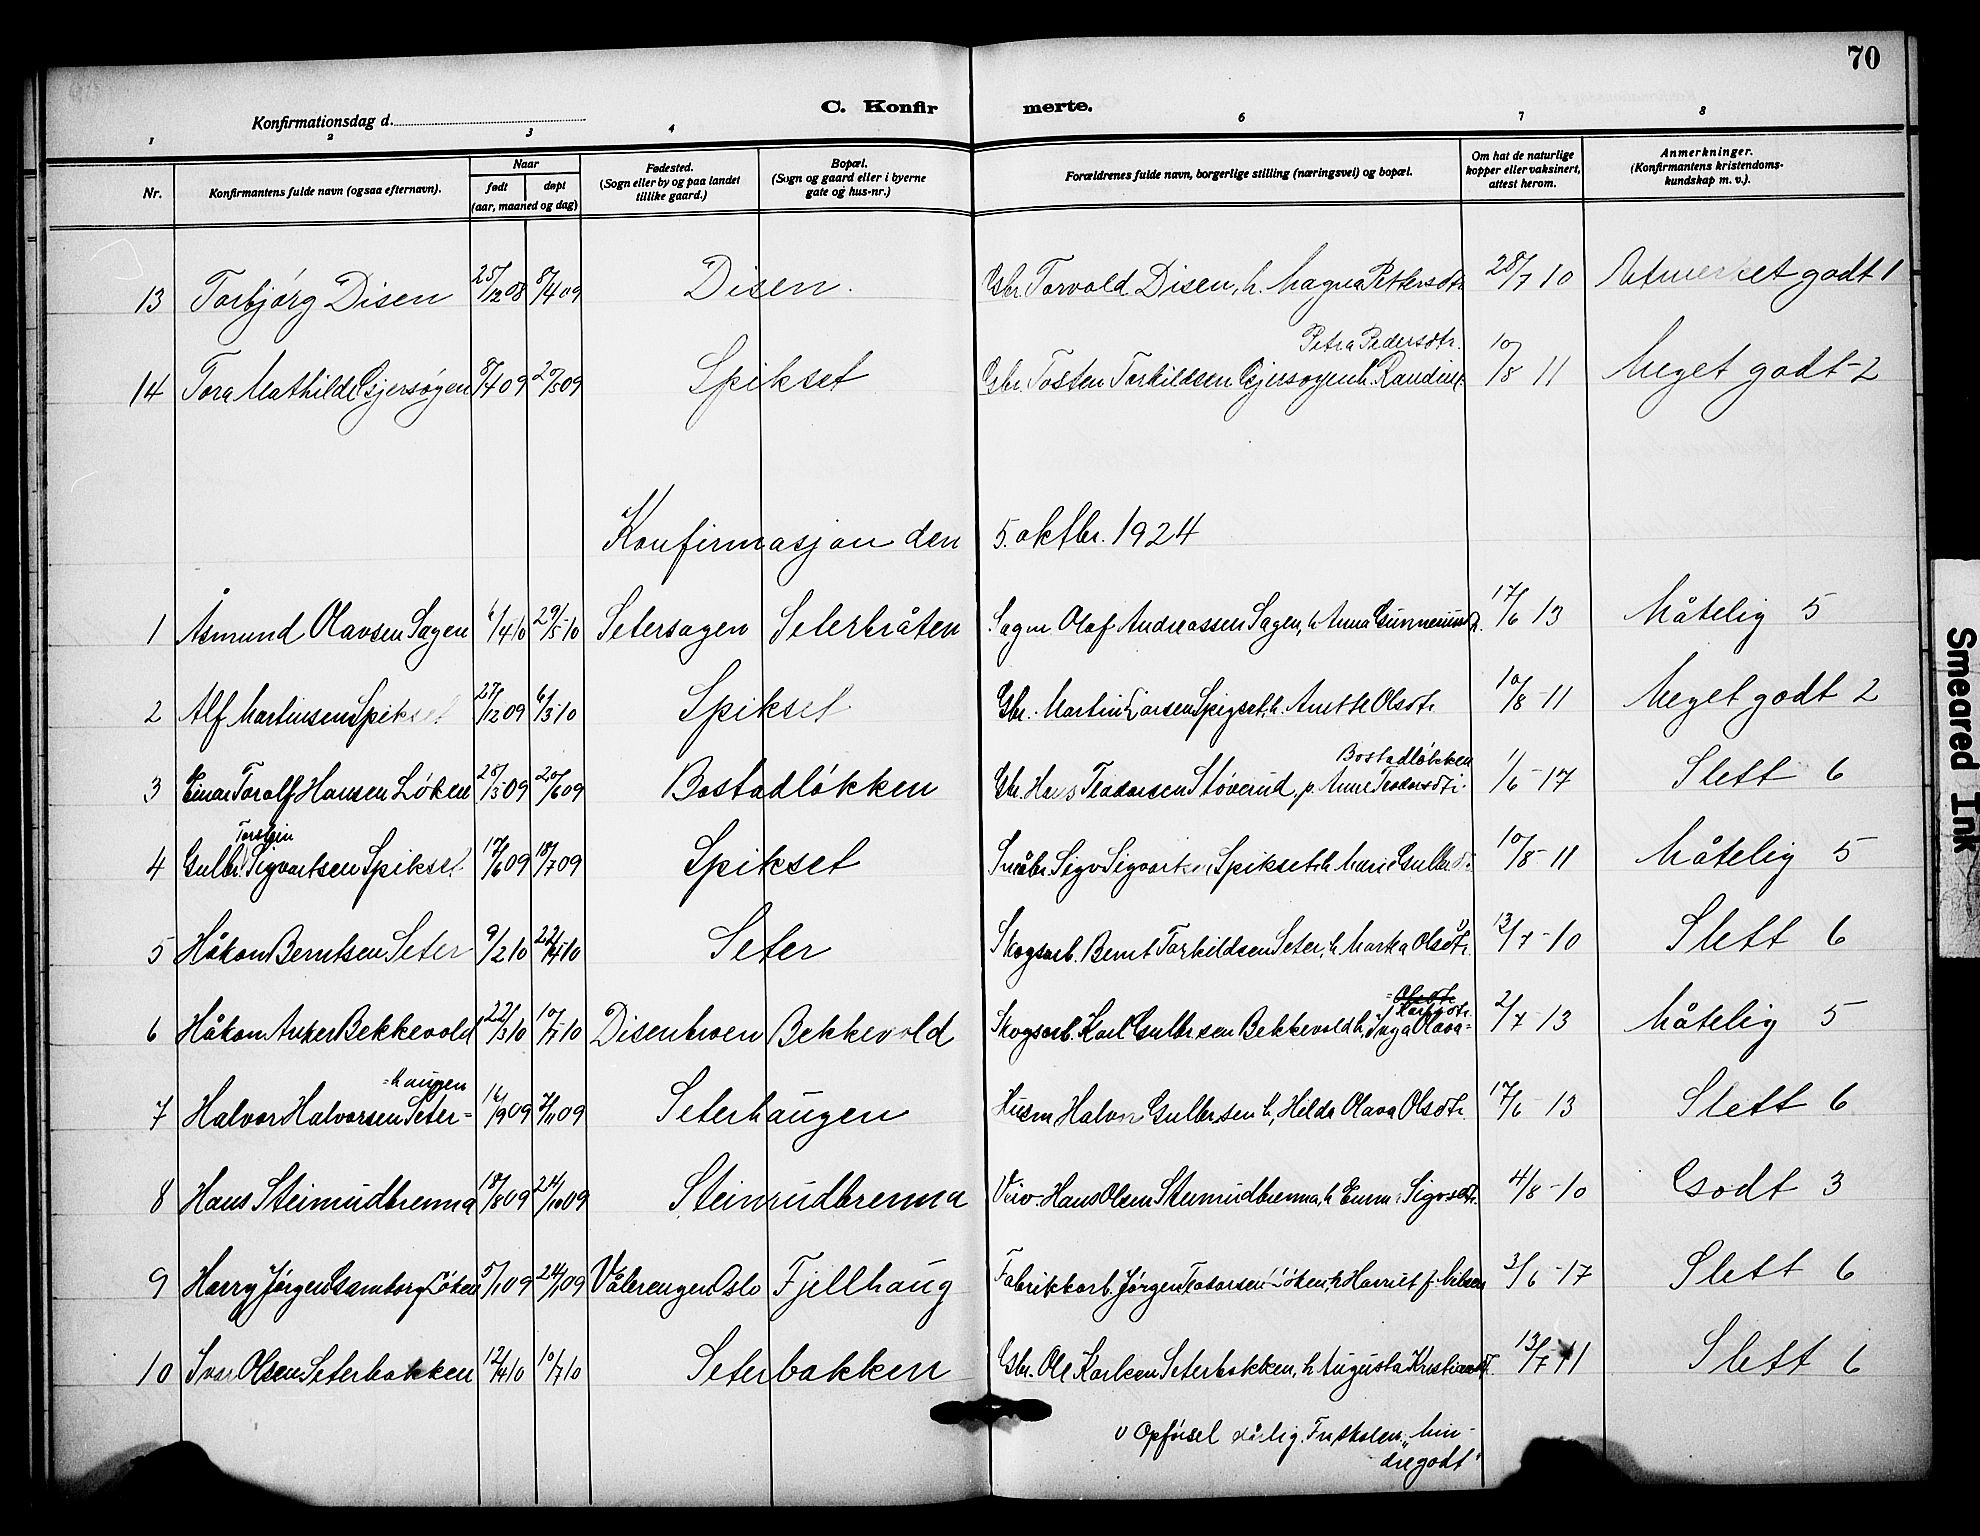 70
C. Konfir merte.
Konfirmationsdag d.
1 2 3 4 6 7 8
Nr. Konfirmantens fulde navn (ogsaa efternavn). Naar født døpt (aar, maaned og dag) Fødested. (Sogn eller by og paa landet tillike gaard.) Bopæl. (Sogn og gaard eller i byerne gate og hus-nr.) Forældrenes fulde navn, borgerlige stilling (næringsvei) og bopæl. Om hat de naturlige kopper eller vaksinert, attest herom. Anmerkninger. (Konfirmantens kristendoms-kundskap m. v.).
13 Torbjørg Disen 25/12 08 8/4 09 Disen. Gbr. Torvald Disen, h. Magna Pettersdtr. 28/7 10 Utmerket godt 1
Petra Pedersdtr.
14 Tora Mathilde Gjersøyen 8/4 09 2/5 09 Spikset Gbr. Tosten Torkildsen Gjersøyen h. Randine 10/8 11 Meget godt - 2
Konfirmasjon den 5. oktbr. 1924
1 Åsmund Olavsen Sagen 6/4 10 29/5 10 Setersagen Seterbråten Sagm Olaf Andreassen Sagen, h Anna 17/6 13 Måtelig 5
2 Alf Martinsen Spikset 27/12 09 6/3 10 Spikset Gbr. Martin Larsen Spigset, h. Anette Olsdtr. 10/8 - 11 Meget godt 2
Bostadløkken
3 Einar Toralf Hansen Løken 28/5 09 20/6 09 Bostadløkken Gbr. Hans Teodorsen Støverud, p. Anne Teodorsdtr. 1/6 - 17 Slett 6
Torstein
4 Gulbr. Sigvartsen Spikset 17/6 09 18/7 09 Spikset Småbr. Sigv Sigvartsen Spikset, h. Marie Gulbr.dtr. 10/8 - 11 Måtelig 5
5 Håkon Berntsen Seter 9/2 10 22/5 10 Seter Skogsarb. Bernt Torkildsen Seter, h Marka Olsdtr. 13/7 - 10 Slett 6
= Olsdtr. Karlsdtr.
6 Håkon Anker Bekkevold 22/3 10 10/7 10 Disenbroen Bekkevold Skogsarb. Karl Gulbrsen Bekkevold h. Inga Olava = 2/7 - 13 Måtelig 5
= haugen
7 Halvor Halvorsen Seter= 16/9 09 7/11 09 Seterhaugen Husm. Halvor Gulbrsen h, Hilda Olava Olsdtr. 17/6 - 13 Slett 6
8 Hans Steinrudbrenna 18/8 09 24/10 09 Steinrudbrenna Hans Olsen Steinrudbrenna, h Emma Sigvsdtr. 4/8 - 10 Godt 3
9 Harry Jørgen Gamborg Løken 5/1 09 24/1 09 Vålerengen Oslo Fjellhaug Fabrikkarb. Jørgen Teodorsen Løken, h Harriet f. Nilsen 3/6 - 17 Slett 6
10 Ivar Olsen Seterbakken 12/4 10 10/7 10 Seterbakken Gbr. Ole Karlsen Seterbakken, h Augusta Kristiansdtr. 13/7 - 11 Slett 6
v Opførsel dårlig. Fr skolen „Min-
dre godt"
Smeared Ink